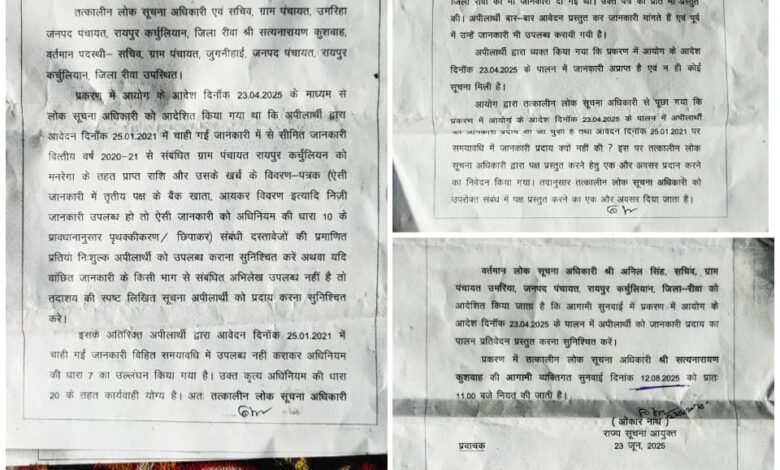 तत्कालीन लोक सूचना अधिकारी एवं सचिव, ग्राम पंचायत, उमरिहा
जनपद पंचायत, रायपुर कर्चुलियान, जिला रीवा श्री सत्यनारायण कुशवाह,
वर्तमान पदस्थी– सचिव, ग्राम पंचायत, जुगनीहाई, जनपद पंचायत, रायपुर
कर्चुलियान, जिला रीवा उपस्थित।
प्रकरण में आयोग के आदेश दिनॉक 23.04.2025 के माध्यम से
लोक सूचना अधिकारी को आदेशित किया गया था कि अपीलार्थी द्वारा
आवेदन दिनॉक 25.01.2021 में चाही गई जानकारी में से सीमित जानकारी
वित्तीय वर्ष 2020-21 से संबंधित ग्राम पंचायत रायपुर कर्चुलियन को
मनरेगा के तहत प्राप्त राशि और उसके खर्च के विवरण–पत्रक (ऐसी
जानकारी में तृतीय पक्ष के बैंक खाता, आयकर विवरण इत्यादि निज़ी
जानकारी उपलब्ध हो तो ऐसी जानकारी को अधिनियम की धारा 10 के
प्रावधानानुसार पृथक्कीकरण/ छिपाकर) संबंधी दस्तावेजों की प्रमाणित
प्रतियां निःशुल्क अपीलार्थी को उपलब्ध कराना सुनिश्चित करे अथवा यदि
वांछित जानकारी के किसी भाग से संबंधित अभिलेख उपलब्ध नहीं है तो
तदाशय की स्पष्ट लिखित सूचना अपीलार्थी को प्रदाय करना सुनिश्चित
करे।
इसके अतिरिक्त अपीलार्थी द्वारा आवेदन दिनॉक 25.01.2021 में
चाही गई जानकारी विहित समयावधि में उपलब्ध नहीं कराकर अधिनियम
की धारा 7 का उल्लंघन किया गया है। उक्त कृत्य अधिनियम की धारा
20 के तहत कार्यवाही योग्य है। अतः तत्कालीन लोक सूचना अधिकारी
जिला रीवा को भी जानकारी दी गई थी। उक्त पत्र की प्रति भी प्रस्तुत
की। अपीलार्थी बार–बार आवेदन प्रस्तुत कर जानकारी मांगते है एवं पूर्व
में उन्हें जानकारी भी उपलब्ध करायी गयी है।
अपीलार्थी द्वारा व्यक्त किया गया कि प्रकरण में आयोग के आदेश
दिनॉक 23.04.2025 के पालन में जानकारी अप्राप्त है एवं न ही कोई
सूचना मिली है।
आयोग द्वारा तत्कालीन लोक सूचना अधिकारी से पूछा गया कि
प्रकरण में आयोग के आदेश दिनॉक 23.04.2025 के पालन में अपीलार्थी
को जानकारी प्रदाय की जा चुकी है तथा आवेदन दिनॉक 25.01.2021 पर
समयावधि में जानकारी प्रदाय क्यो नहीं की ? इस पर तत्कालीन लोक
सूचना अधिकारी द्वारा पक्ष प्रस्तुत करने हेतु एक और अवसर प्रदान करने
का निवेदन किया गया। तदानुसार तत्कालीन लोक सूचना अधिकारी को
उपरोक्त संबंध में पक्ष प्रस्तुत करने का एक और अवसर दिया जाता है।
वर्तमान लोक सूचना अधिकारी श्री अनिल सिंह, सचिव, ग्राम
पंचायत उमरिया, जनपद पंचायत, रायपुर कर्चुलियान, जिला–रीवा को
आदेशित किया जाता है कि आगामी सुनवाई में प्रकरण में आयोग के
आदेश दिनॉक 23.04.2025 के पालन में अपीलार्थी को जानकारी प्रदाय का
पालन प्रतिवेदन प्रस्तुत करना सुनिश्चित करें।
प्रकरण में तत्कालीन लोक सूचना अधिकारी श्री सत्यनारायण
कुशवाह की आगामी व्यक्तिगत सुनवाई दिनांक 12.08.2025 को प्रातः
11.00 बजे नियत की जाती है।
( ओंकार नाथ )
राज्य सूचना आयुक्त
प्रवाचक 23 जून, 2025